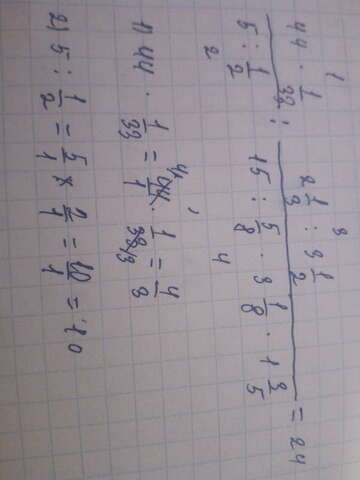 1 3
44 · 1/33 : 2 1/3 : 3 1/2
5 : 1/2 15 : 5/8 · 3 1/8 · 1 3/5 = 24
2 4
1) 44 · 1/33 = 4 44/1 · 1/33 3 = 4/3
2) 5 : 1/2 = 5/1 × 2/1 = 10/1 = 10